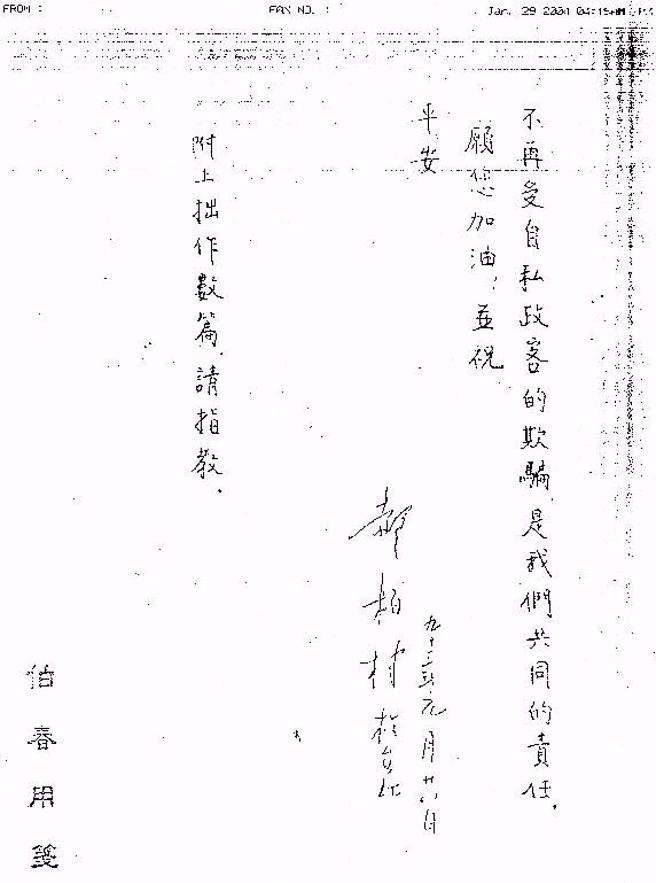 FROM :
FAX NO. :
Jan. 29 2004
不再受自私政客的欺騙,是我們共同的責任.
願您加油,並祝
平安
郝柏村於台北
九十三年元月廿八日
附上拙作數篇,請指教.
伯春用箋